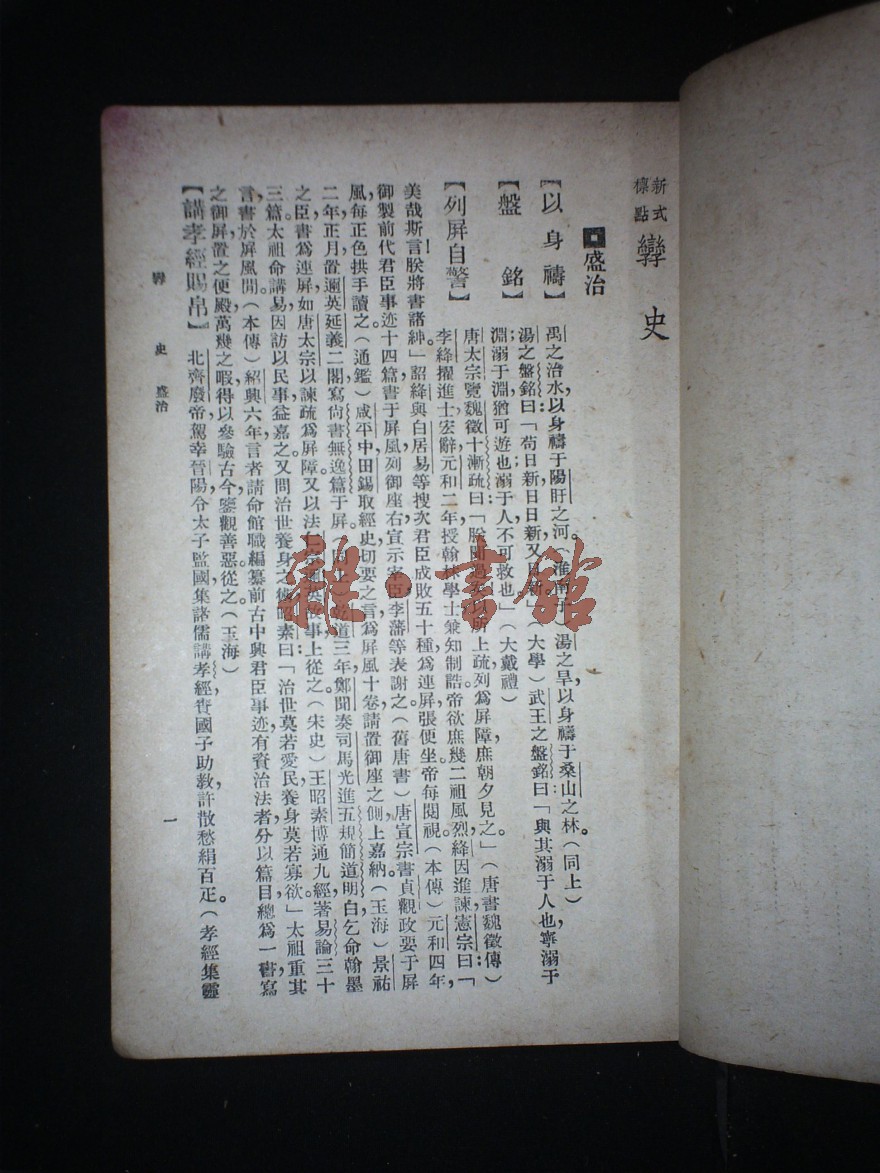 新式標點
孿史
盛治
【以身禱】 禹之治水，以身禱于陽盱之河。（淮南子）湯之旱，以身禱于桑山之林。（同上）
【盤銘】 湯之盤銘曰：「苟日新，日日新，又日新」（大學）武王之盤銘曰：「與其溺于人也，寧溺于
淵；溺于淵，猶可遊也；溺于人，不可救也」（大戴禮）
【列屏自警】 唐太宗覽魏徵十漸疏曰：「朕聞過矣以所上疏，列爲屏障，庶朝夕見之。」（唐書魏徵傳）
李絳擢進士宏辭，元和二年，授翰林學士，兼知制誥，帝欲庶幾二祖風烈，絳因進諫，憲宗曰：「
美哉斯言！朕將書諸紳。」詔絳與白居易等，搜次君臣成敗五十種，爲連屏，張便坐。帝每閱視。（本傳）元和四年，
御製前代君臣事迹十四篇，書于屏風，列御座右，宣示宰臣李藩等，表謝之。（舊唐書）唐宣宗書貞觀政要于屏
風，每正色拱手讀之。（通鑑）咸平中，田錫取經史切要之言，爲屏風十卷，請置御座之側，上嘉納。（玉海）景祐
二年正月，置邇英延義二閣，寫尚書無逸篇于屏。（同上）乾道三年，鄭聞奏司馬光進五規，簡道明白，乞命翰墨
之臣，書爲連屏，如唐太宗以諫疏爲屏障，又以法仁宗邇英故事，上從之。（朱史）王昭素博通九經，著易論三十
三篇。太祖命講易，因訪以民事，益嘉之。又問治世養身之術，昭素曰：「治世莫若愛民，養身莫若寡欲。」太祖重其
言，書於屏風間。（本傳）紹興六年，言者請命館職編纂前古中興君臣事迹，有資治法者，分以篇目，總爲一書，寫
之御屏，置之便殿，萬幾之暇，得以參驗古今，鑒觀善惡，從之。（玉海）
【講孝經賜帛】 北齊廢帝駕幸晉陽，令太子監國，集諸儒講孝經，賚國子助教許散愁絹百疋。（孝經集靈
孿史 盛治
一
雜·書館